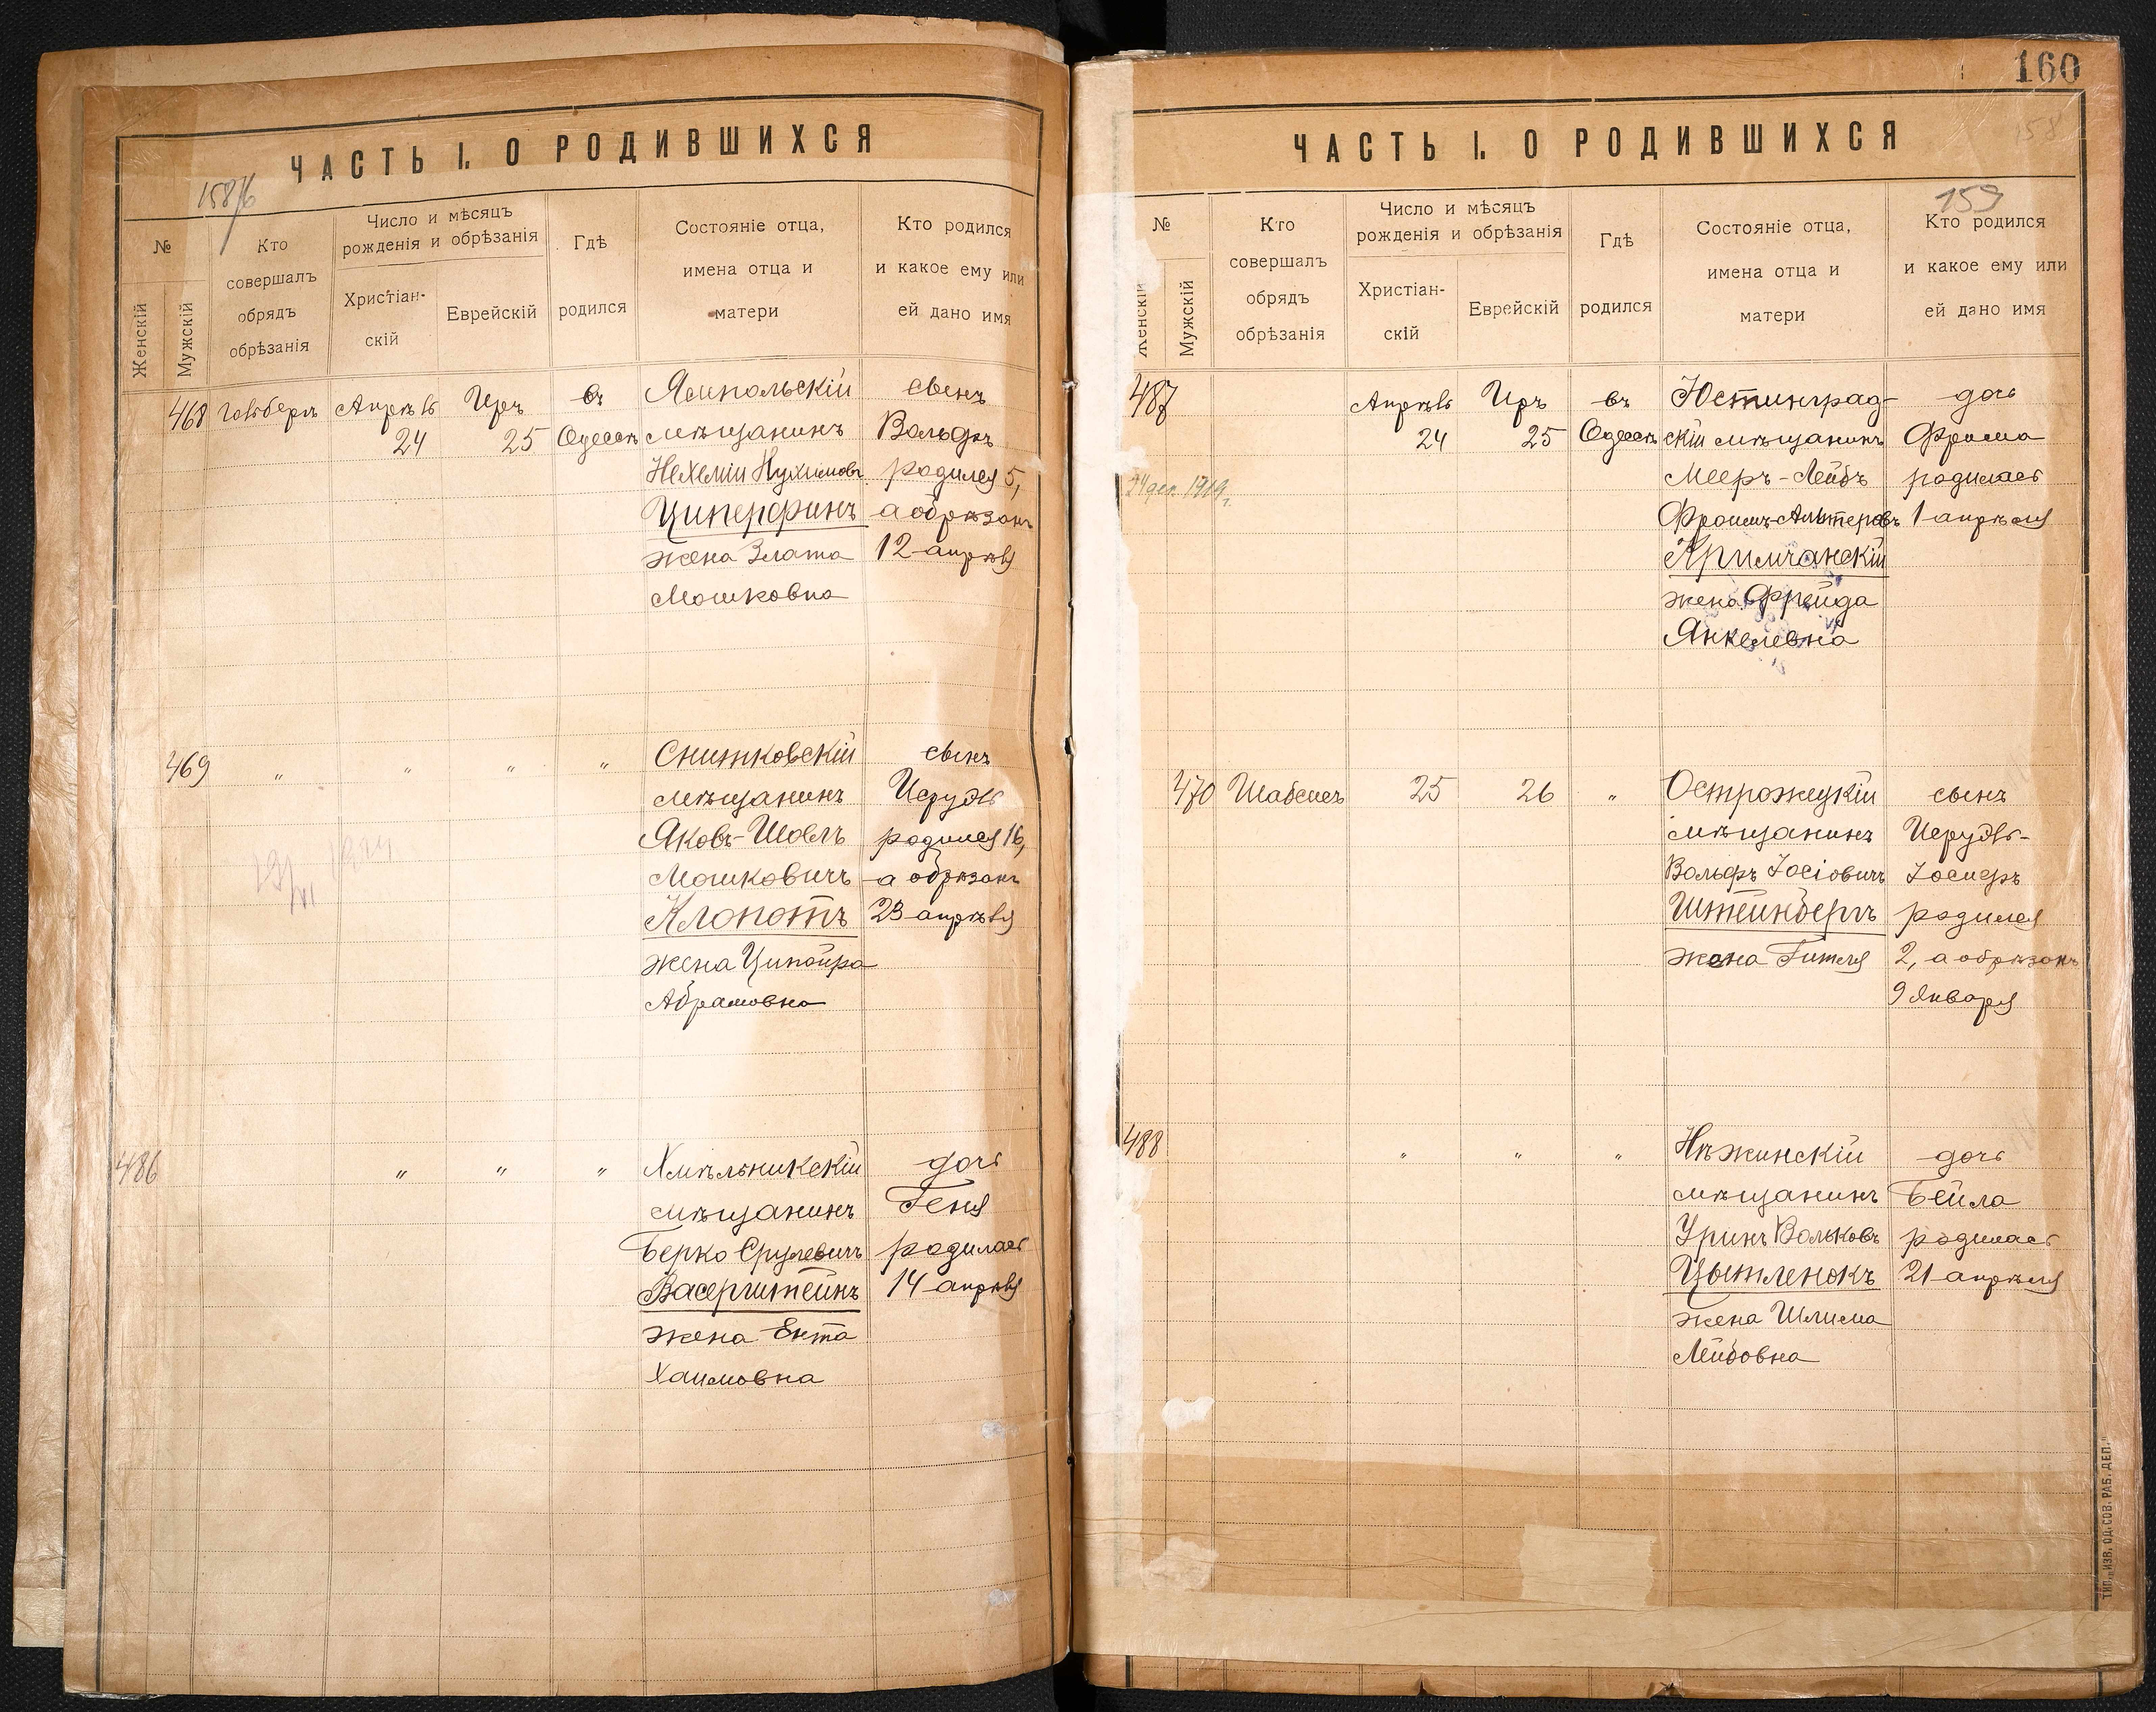 ЧАСТЬ I. О РОДИВШИХСЯ
158/6
№
Женскій
Мужскій
Кто
совершалъ
обрядъ
обрѣзанія
Число и мѣсяцъ
рожденія и обрѣзанія
Христіан-
скій
Еврейскій
Гдѣ
родился
Состояніе отца,
имена отца и
матери
Кто родился
и какое ему или
ей дано имя
468 Апрѣль Иръ въ Ямпольскій сынъ
24 25 Одессѣ мѣщанинъ Вольфъ
Нехемія Нухимовъ родился 5,
Циперфинъ а обрѣзанъ
жена Злата 12 апрѣля
Мошковна
469 " " " " Снитковскій сынъ
мѣщанинъ Исруэль
Яковъ-Шоель родился 16,
Мошковичъ а обрѣзанъ
Клопотъ 23 апрѣля
жена Ципойра
Абрамовна
486 " " " Хмѣльникскій дочь
мѣщанинъ Геня
Берко Срулевичъ родилась
Васерштейнъ 14 апрѣля
жена Ента
Хаимовна
160
158
ЧАСТЬ I. О РОДИВШИХСЯ
159
№
Женскій
Мужскій
Кто
совершалъ
обрядъ
обрѣзанія
Число и мѣсяцъ
рожденія и обрѣзанія
Христіан-
скій
Еврейскій
Гдѣ
родился
Состояніе отца,
имена отца и
матери
Кто родился
и какое ему или
ей дано имя
487 Апрѣль Иръ въ Юстинград- дочь
24 25 Одессѣ скій мѣщанинъ Фрима
24 дек. 1919 г. Мееръ-Лейбъ родилась
Фроимъ-Альтеровъ 1 апрѣля
Кримчанскій
жена Фрейда
Янкелевна
470 Шабсисъ 25 26 " Острожецкій сынъ
мѣщанинъ Исруэль-
Вольфъ Іосіовичъ Іосифъ
Штейнбергъ родился
жена Гитля 2, а обрѣзанъ
9 Января
488 " " " Нѣжинскій дочь
мѣщанинъ Бейла
Уринъ Вольковъ родилась
Цытленокъ 21 апрѣля
жена Шлима
Лейбовна
ТИП. „ИЗВ. ОД. СОВ. РАБ. ДЕП."